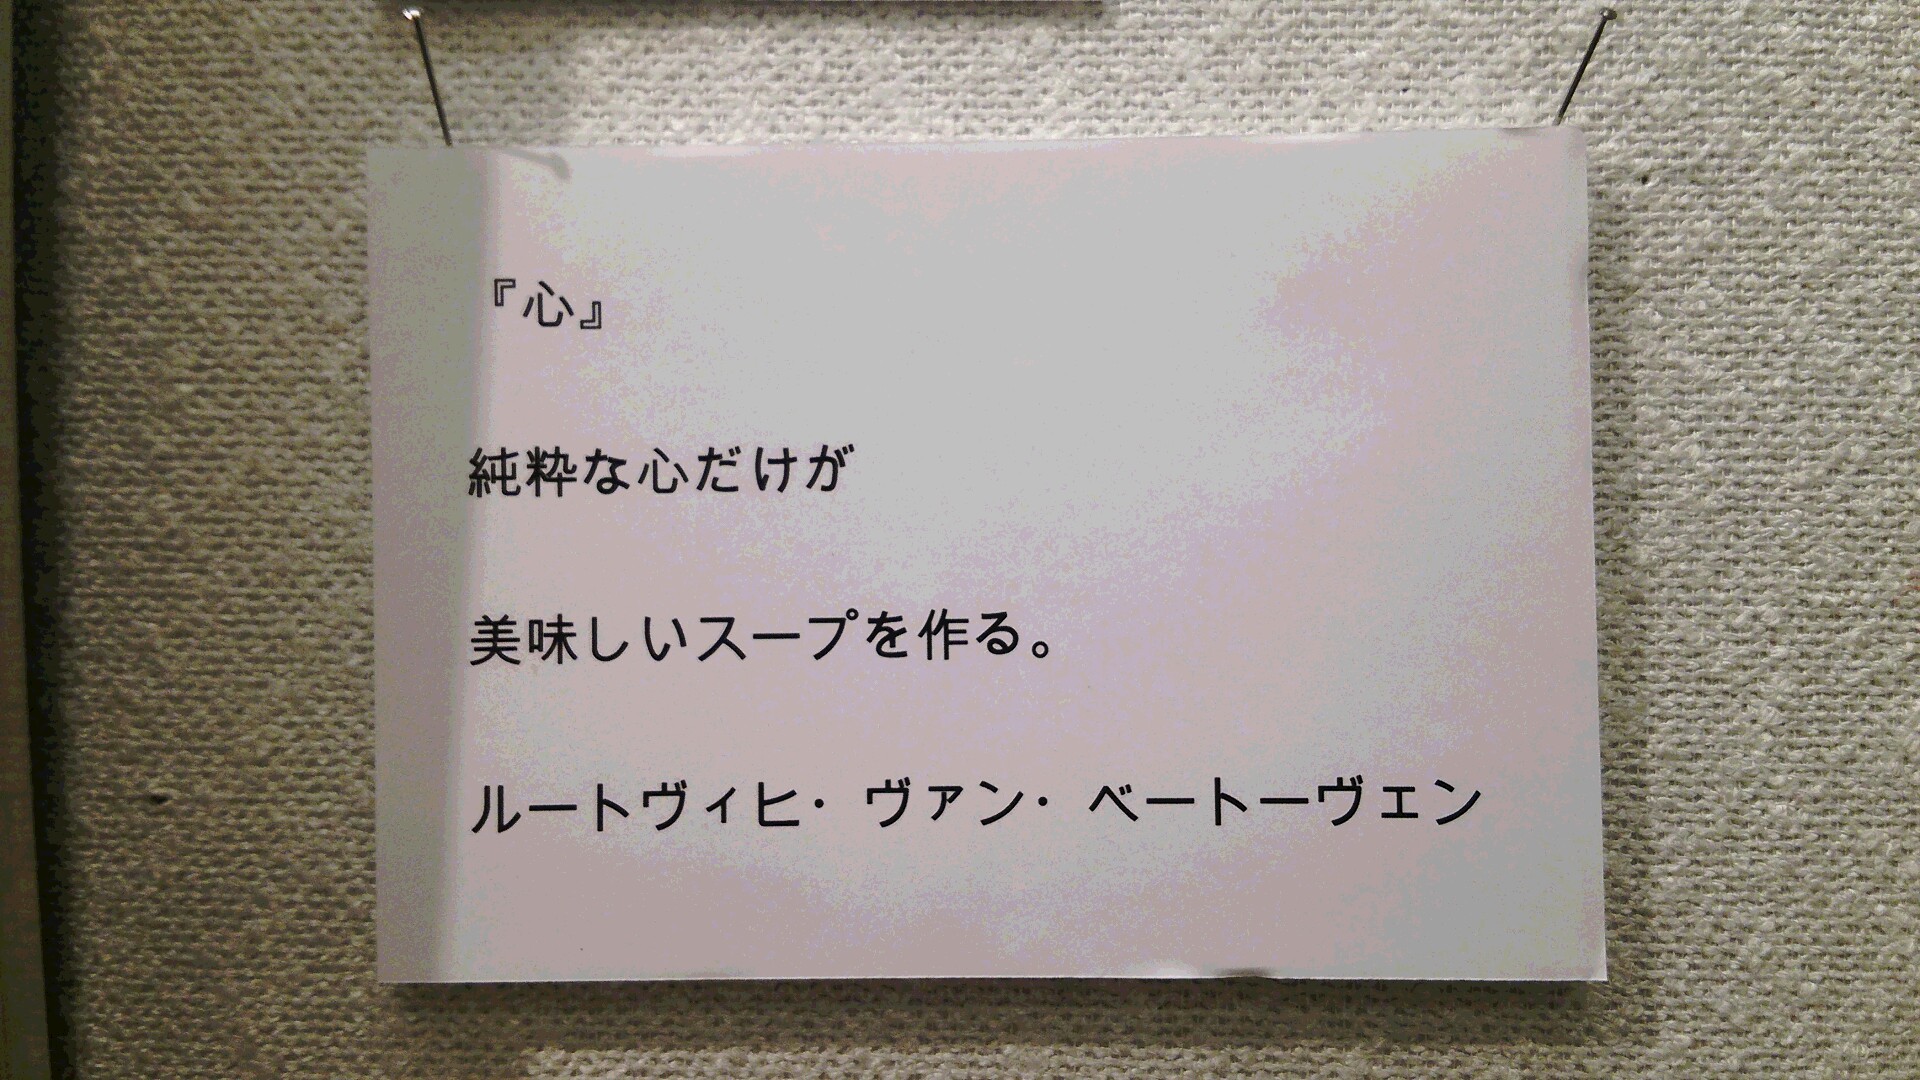 『心』
純粋な心だけが
美味しいスープを作る。
ルートヴィヒ・ヴァン・ベートーヴェン